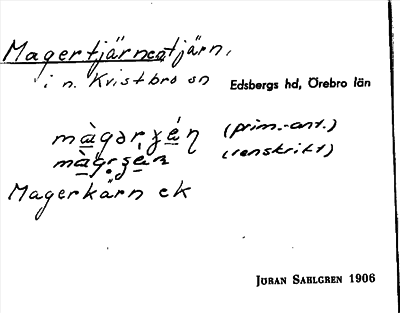 Magertjärnen, tjärn,
i n. Kvistbro sn Edsbergs hd, Örebro län
(prim.-ant.)
(renskrift)
Magerkärn ek
JÖRAN SAHLGREN 1906